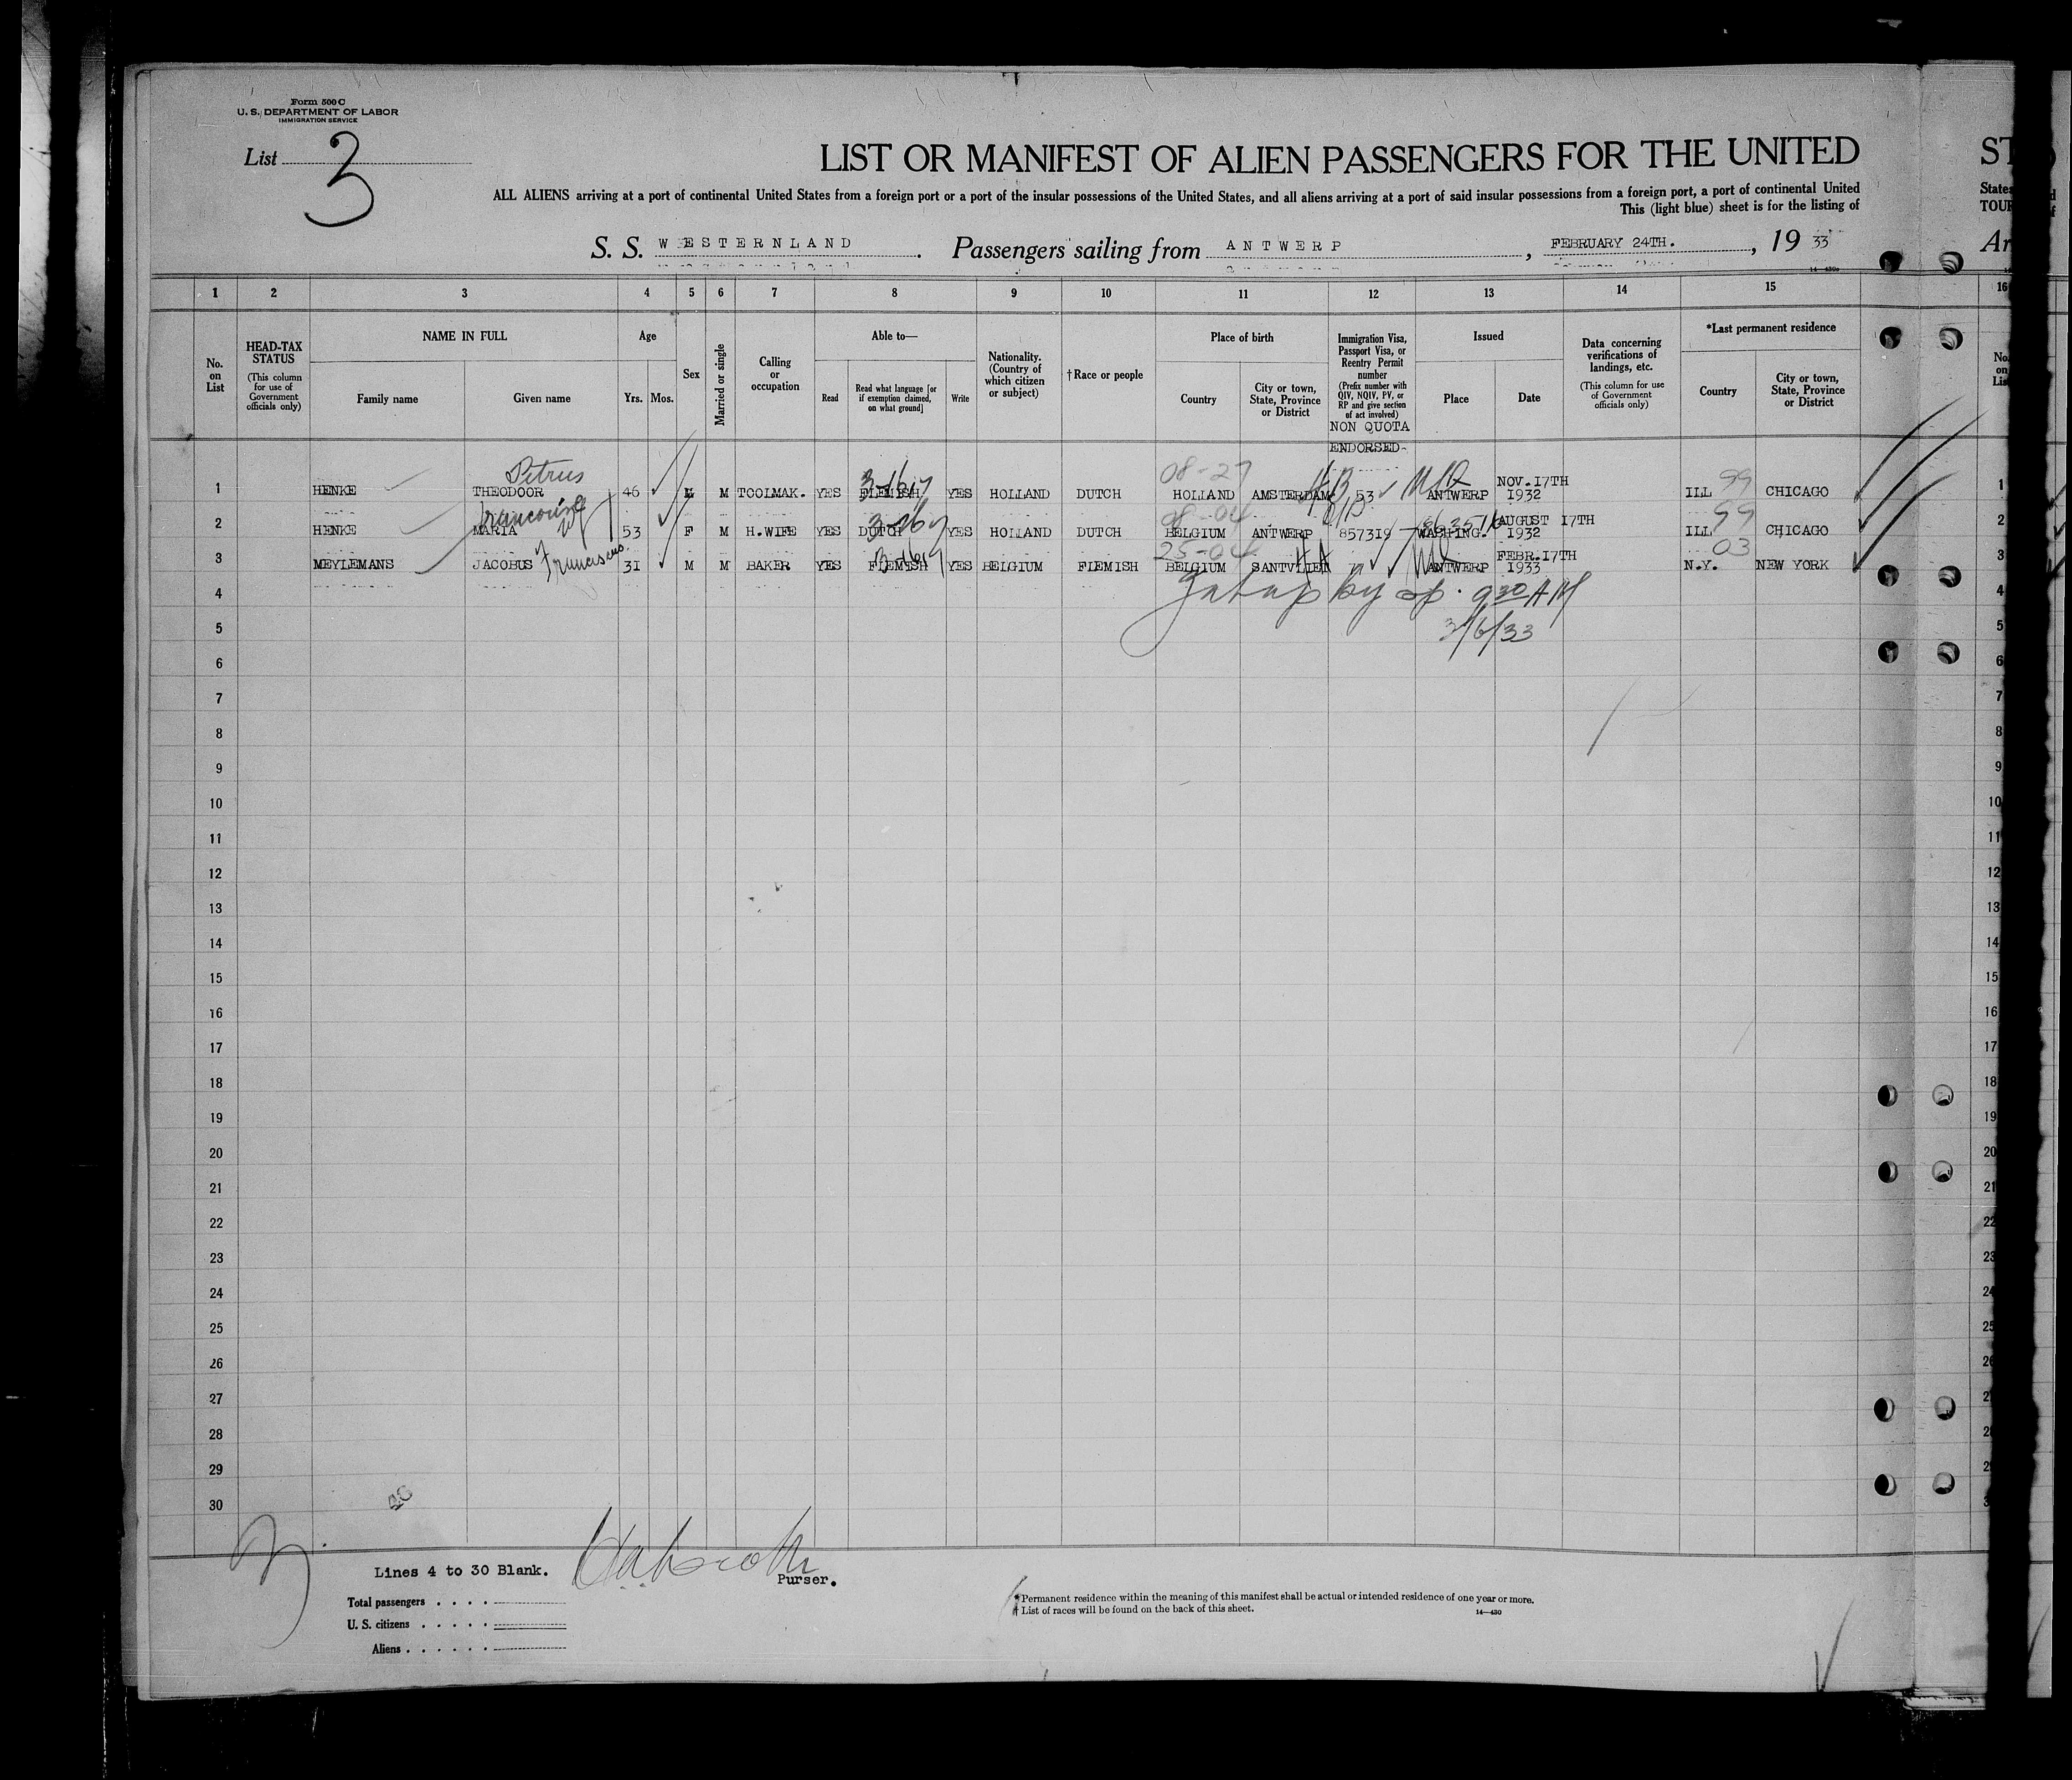 Form 500 C
U. S. DEPARTMENT OF LABOR
IMMIGRATION SERVICE
List 3
LIST OR MANIFEST OF ALIEN PASSENGERS FOR THE UNITED
ST
ALL ALIENS arriving at a port of continental United States from a foreign port or a port of the insular possessions of the United States, and all aliens arriving at a port of said insular possessions from a foreign port, a port of continental United
States
This (light blue) sheet is for the listing of
TOUR
S. S. WESTERNLAND. Passengers sailing from ANTWERP, FEBRUARY 24TH., 1933
Ar
1 2 3 4 5 6 7 8 9 10 11 12 13 14 15 16
No. on List
HEAD-TAX STATUS
(This column for use of Government officials only)
NAME IN FULL
Family name
Given name
Age
Yrs. Mos.
Sex
Married or single
Calling or occupation
Able to—
Read
Read what language [or if exemption claimed, on what ground]
Write
Nationality. (Country of which citizen or subject)
†Race or people
Place of birth
Country
City or town, State, Province or District
Immigration Visa, Passport Visa, or Reentry Permit number
(Prefix number with QIV, NQIV, PV, or RP and give section of act involved)
NON QUOTA
ENDORSED-
Issued
Place
Date
Data concerning verifications of landings, etc.
(This column for use of Government officials only)
*Last permanent residence
Country
City or town, State, Province or District
No. on List
Petrus
08-27
NOV.17TH
99
1 HENKE THEODOOR 46 M M TOOLMAK. YES FLEMISH YES HOLLAND DUTCH HOLLAND AMSTERDAM 53 ANTWERP 1932 ILL CHICAGO 1
08-04
AUGUST 17TH
99
2 HENKE MARIA 53 F M H.WIFE YES DUTCH YES HOLLAND DUTCH BELGIUM ANTWERP 857319 WASHING. 1932 ILL CHICAGO 2
25-04
FEBR.17TH
03
3 MEYLEMANS JACOBUS Franciscus 31 M M BAKER YES FLEMISH YES BELGIUM FLEMISH BELGIUM SANTVLIET ANTWERP 1933 N.Y. NEW YORK 3
4 by 9 30 AM 4
5 3/6/33 5
6 6
7 7
8 8
9 9
10 10
11 11
12 12
13 13
14 14
15 15
16 16
17 17
18 18
19 19
20 20
21 21
22 22
23 23
24 24
25 25
26 26
27 2
28 28
29 2
30 3
Lines 4 to 30 Blank.
Purser.
Total passengers
U. S. citizens
Aliens
*Permanent residence within the meaning of this manifest shall be actual or intended residence of one year or more.
† List of races will be found on the back of this sheet.
14—430